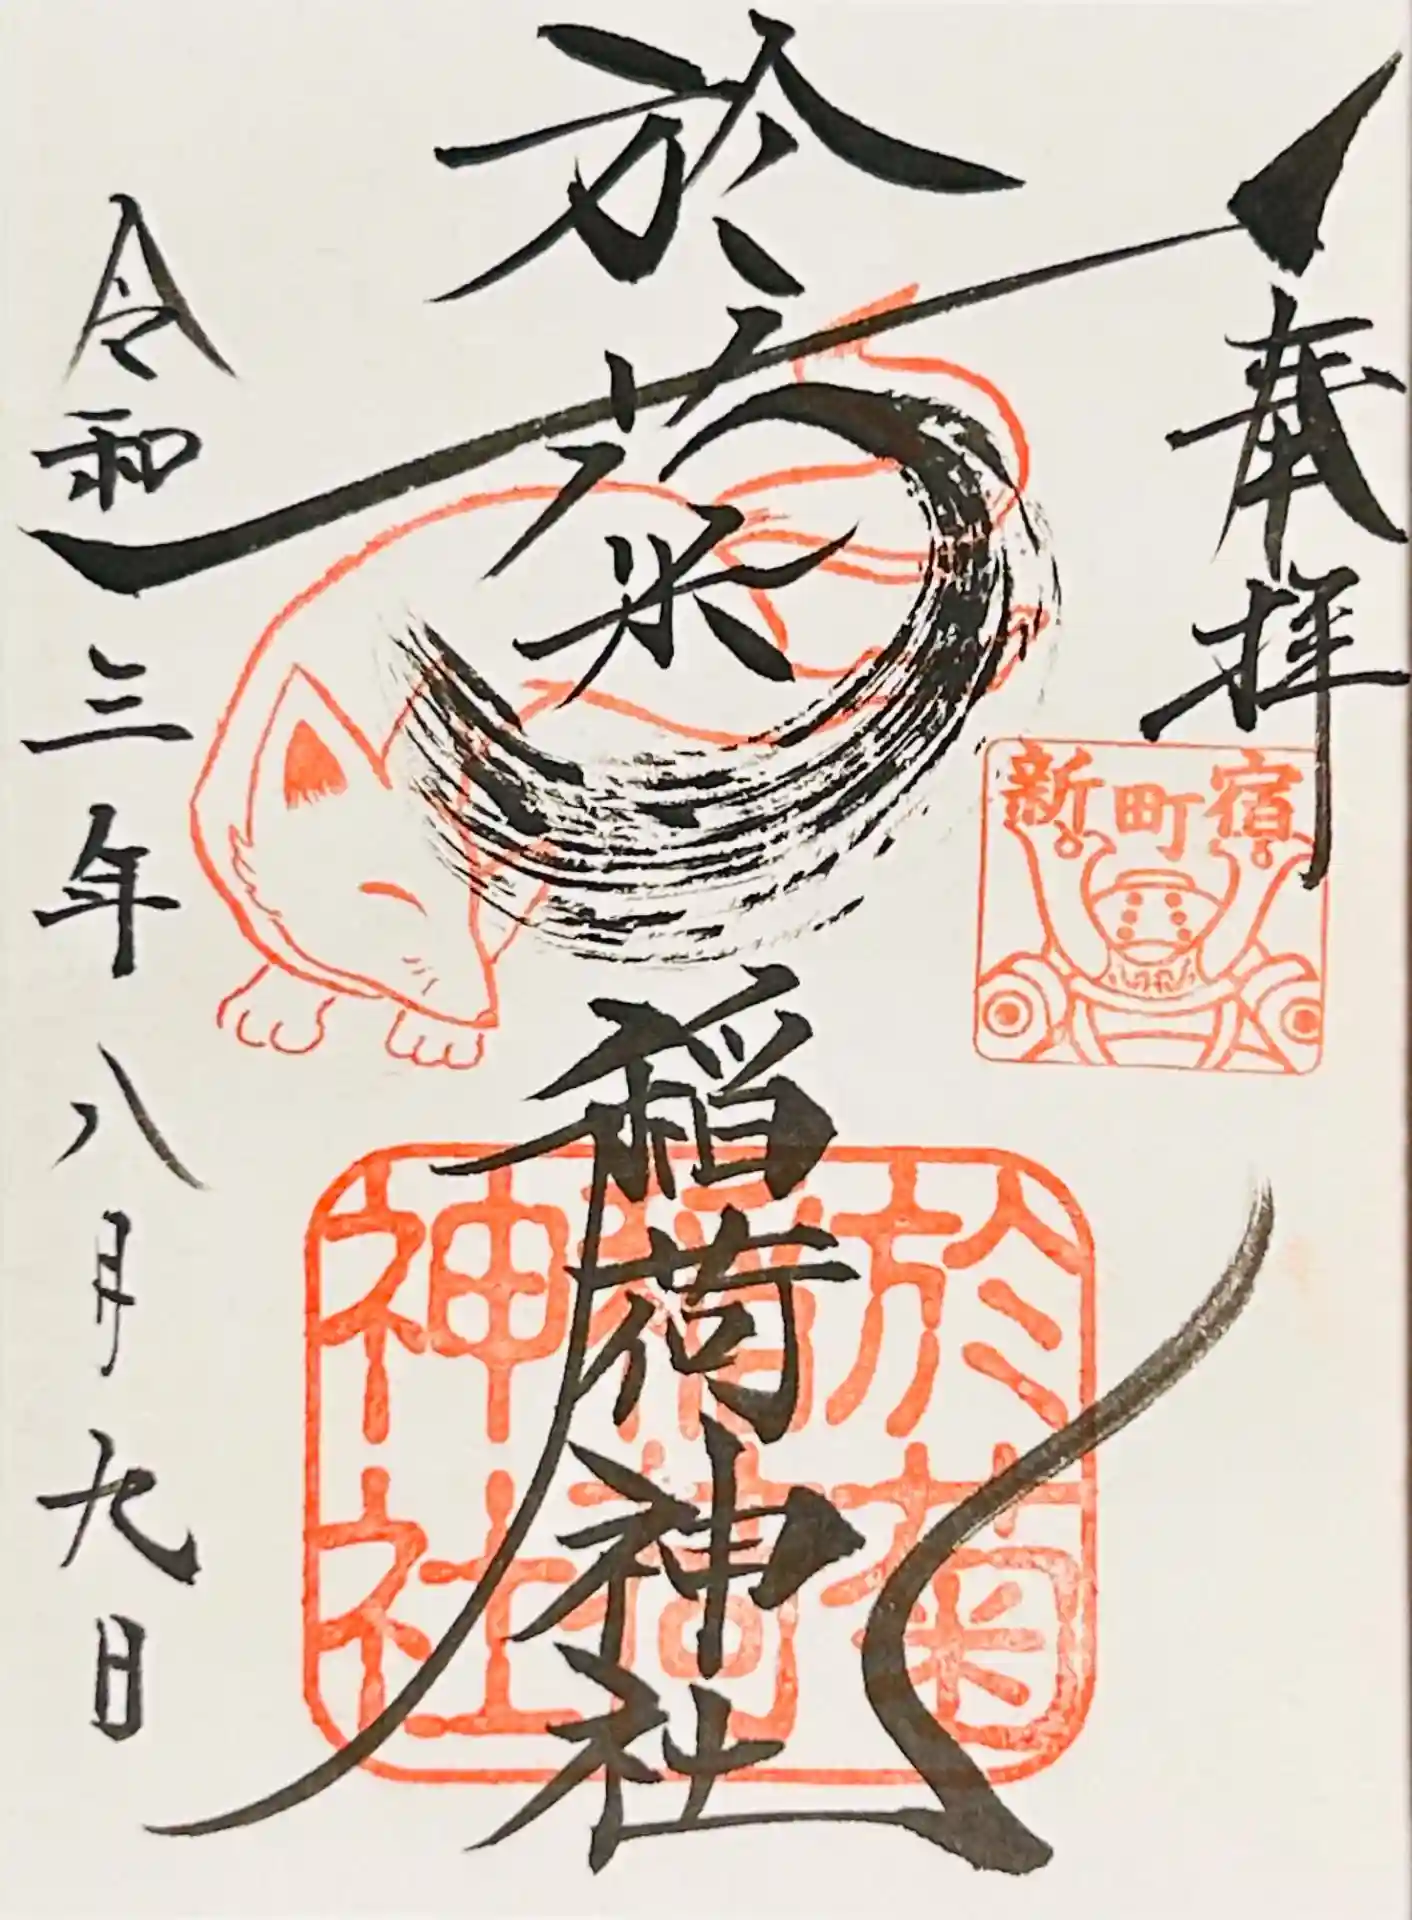 奉拝
新町宿
於菊
稲荷神社
於菊
稲荷
神社
令和三年八月九日